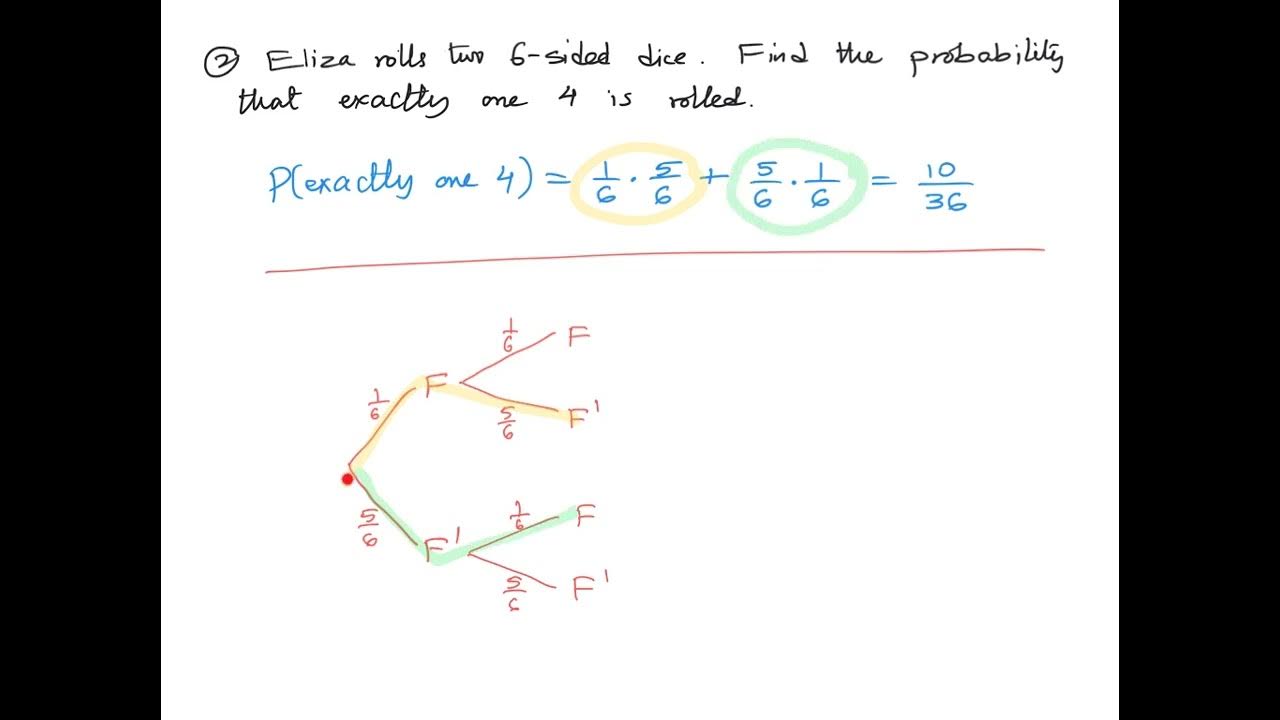 ② Eliza rolls two 6-sided dice. Find the probability
that exactly one 4 is rolled.
P(exactly one 4) = 1/6 · 5/6 + 5/6 · 1/6 = 10/36
1/6 F
1/6 F
5/6 F'
5/6 F'
1/6 F
5/6 F'